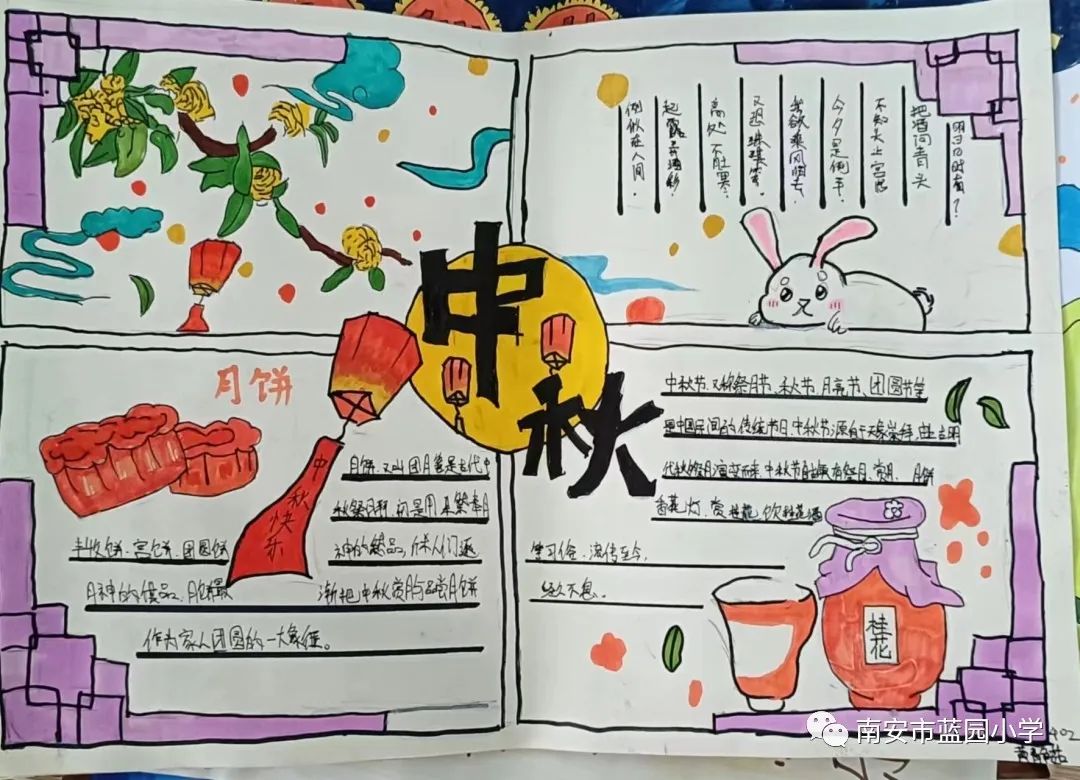 明月几时有?
把酒问青天
不知天上宫
今夕是何年.
我欲乘风归去,
又恐
高处不胜寒.
起
何似在人间.
中
秋
月饼
中秋快乐
月饼、又叫团月 是古代中
秋祭月 是用来祭奉月
丰收饼、宫饼、团圆饼
神的 人们逐
月神的 品.月饼
渐把中秋赏月与品尝月饼
作为家人团圆的一大象征。
中秋节、又称祭月节、秋节、月亮节、团圆节
是中国民间的传统节日.中秋节源自 崇拜,由上古
代秋 祭月演变而来.中秋节自 有祭月、赏月、 月饼
花灯、赏桂花、饮桂花酒
流传至今,
经久不息。
桂花
南安市蓝园小学
402